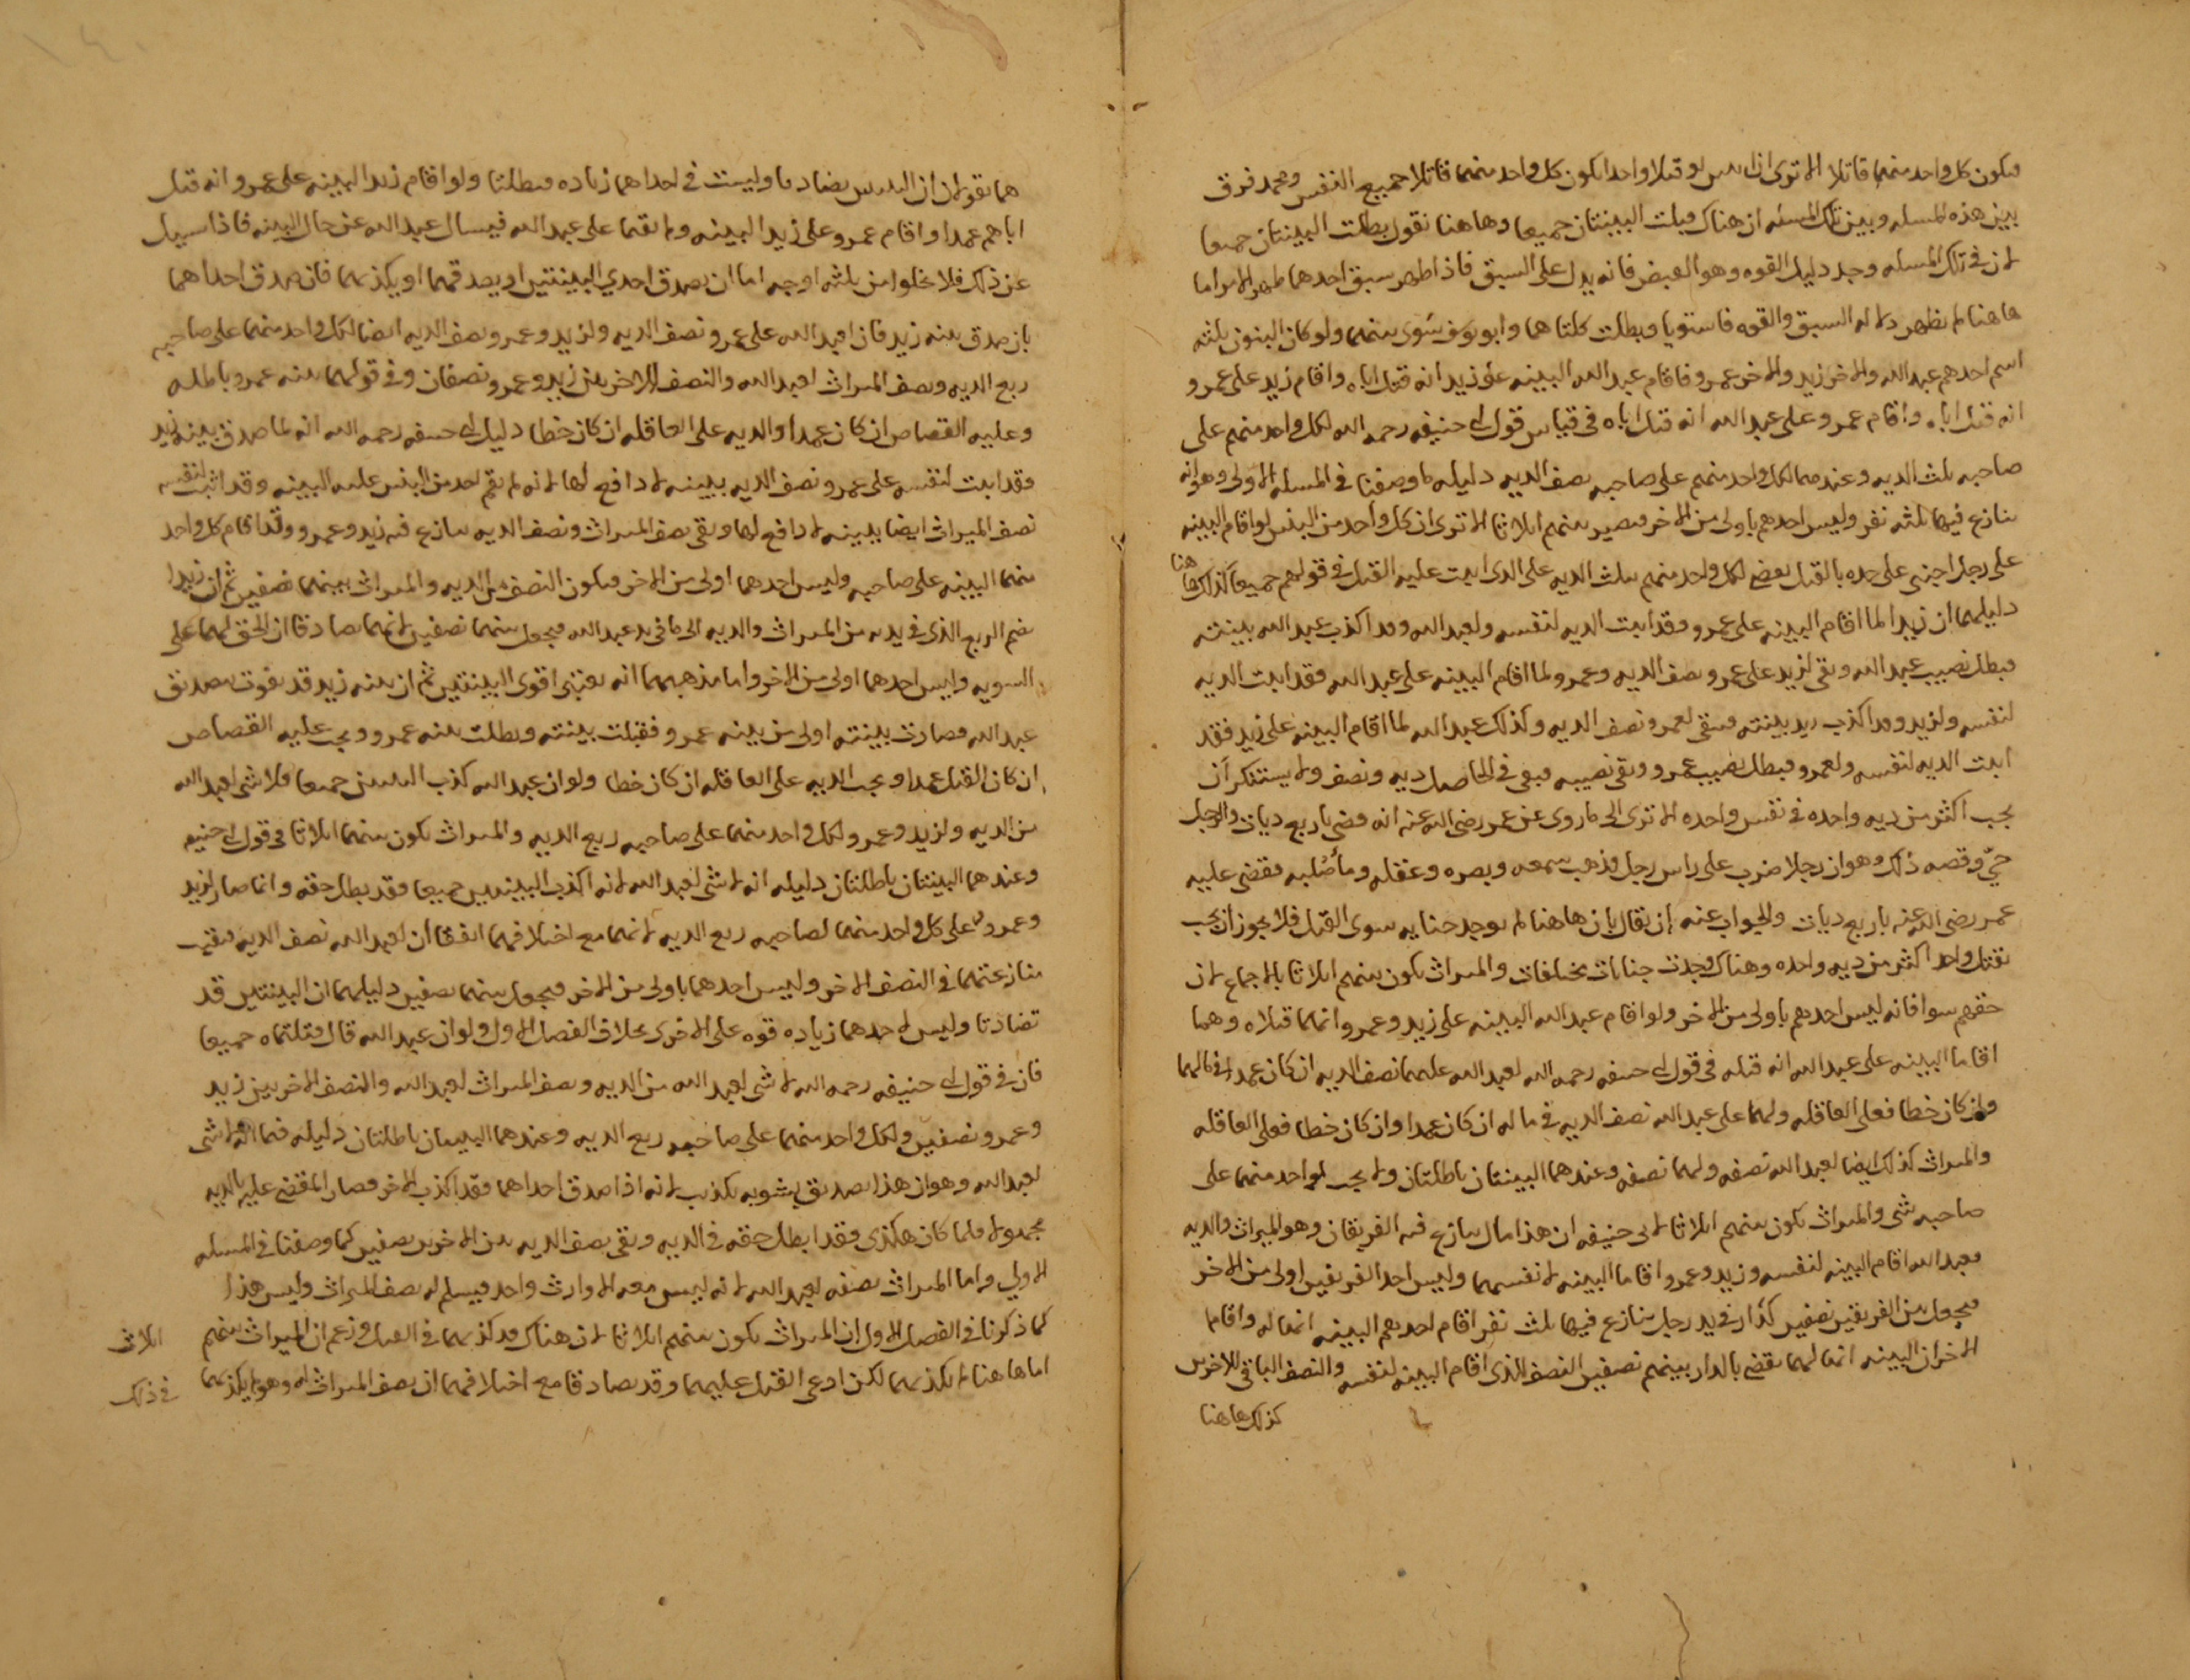 فيكون كل واحد منهما قاتلا الا ترى ان اثنين لو قتلا واحدا يكون كل واحد منهما قاتلا جميع النفس ومحمد فرق
بين هذه المسله وبين تلك المسئله ان هناك قبلت البينتان جميعا وهاهنا نقول بطلت البينتان جميعا
لان في تلك المسله وجد دليل القوه وهو القبض فانه يدل على السبق فاذا ظهر سبق احدهما ظهر الامر اما
هاهنا لم يظهر دلاله السبق والقوه فاستويا وبطلت كلتاهما وابو يوسف سوى بينهما ولو كان البنون ثلثه
اسم احدهم عبد الله والاخر زيد والاخر عمرو فاقام عبد الله البينه على زيد انه قتل اباه واقام زيد على عمرو
انه قتل اباه واقام عمرو على عبد الله انه قتل اباه في قياس قول ابي حنيفه رحمه الله لكل واحد منهم على
صاحبه ثلث الديه وعندهما لكل واحد منهم على صاحبه نصف الديه دليله ما وصفنا في المسله الاولى وهو انه
تنازع فيها ثلثه نفر وليس احدهم باولى من الاخر فيصير بينهم اثلاثا الا ترى ان كل واحد من البنين لو اقام البينه
على رجل اجنبى على حده بالقتل يقضى لكل واحد منهم بثلث الديه على الذى اثبت عليه القتل في قولهم جميعا كذلك هاهنا
دليلهما ان زيدا لما اقام البينه على عمرو فقد اثبت الديه لنفسه ولعبد الله وقد اكذب عبد الله بينته
فبطل نصيب عبد الله وبقى لزيد على عمرو نصف الديه وعمرو لما اقام البينه على عبد الله فقد اثبت الديه
لنفسه ولزيد وقد اكذب زيد بينته فيبقى لعمرو نصف الديه وكذلك عبد الله لما اقام البينه على زيد فقد
اثبت الديه لنفسه ولعمرو فبطل نصيب عمرو وبقى نصيبه فبقى في الحاصل ديه ونصف ولا يستنكر ان
يجب اكثر من ديه واحده في نفس واحده الا ترى الى ما روى عن عمر رضى الله عنه انه قضى باربع ديات والرجل
حيّ وقصه ذلك وهو ان رجلا ضرب على راس رجل فذهب سمعه وبصره وعقله وماء صُلبه فقضى عليه
عمر رضى الله عنه باربع ديات والجواب عنه ان يقال بان هاهنا لم يوجد جنايه سوى القتل فلا يجوز ان يجب
بقتل واحد اكثر من ديه واحده وهناك وجدت جنايات مختلفات والميراث يكون بينهم اثلاثا بالاجماع لان
حقهم سوا فانه ليس احدهم باولى من الاخر ولو اقام عبد الله البينه على زيد وعمرو انهما قتلاه وهما
اقاما البينه على عبد الله انه قتله في قول ابي حنيفه رحمه الله لعبد الله عليهما نصف الديه ان كان عمدا في مالهما
وان كان خطا فعلى العاقله ولهما على عبد الله نصف الديه في ماله ان كان عمدا وان كان خطا فعلى العاقله
والميراث كذلك ايضا لعبد الله نصفه ولهما نصفه وعندهما البينتان باطلتان ولا يجب لواحد منهما على
صاحبه شى والميراث يكون بينهم اثلاثا لابى حنيفه ان هذا مال تنازع فيه الفريقان وهو الميراث والديه
فعبد الله اقام البينه لنفسه وزيد وعمرو اقاما البينه لانفسهما وليس احد الفريقين اولى من الاخر
فيجعل بين الفريقين نصفين كدار في يد رجل تنازع فيها ثلث نفر اقام احدهم البينه انها له واقاما
الاخران البينه انها لهما يقضى بالدار بينهم نصفين النصف الذى اقام البينه لنفسه والنصف الباقى للاخرين
كذلك هاهنا
هما يقولان ان البينتين تضادتا وليست في احداهما زياده فبطلتا ولو اقام زيد البينه على عمرو انه قتل
اباهم عمدا واقام عمرو على زيد البينه ولم يقيما على عبد الله فيسال عبد الله عن حال البينه فاذا سيل
عن ذلك فلا يخلوا من ثلثه اوجه اما ان يصدق احدي البينتين او يصدقهما او يكذبهما فان صدق احداهما
بان صدق بينه زيد فان لعبد الله على عمرو نصف الديه ولزيد وعمرو نصف الديه ايضا لكل واحد منهما على صاحبه
ربع الديه ونصف الميراث لعبد الله والنصف الاخر بين زيد وعمرو نصفان وفي قولهما بينه عمرو باطله
وعليه القصاص ان كان عمدا والديه على العاقله ان كان خطا دليل ابي حنيفه رحمه الله انه لما صدق بينه زيد
فقد اثبت لنفسه على عمرو نصف الديه ببينه لا دافع لها لانه لم يقم احد من البنين عليه البينه وقد اثبت لنفسه
نصف الميراث ايضا ببينه لا دافع لها وبقى نصف الميراث ونصف الديه تنازع فيه زيد وعمرو ولقد اقام كل واحد
منهما البينه على صاحبه وليس احدهما اولى من الاخر فيكون النصف من الديه والميراث بينهما نصفين ثم ان زيدا
يضم الربع الذى في يديه من الميراث والديه الى ما في يد عبد الله فيجعل بينهما نصفين لانهما تصادقا ان الحق لهما على
السويه وليس احدهما اولى من الاخر واما مذهبهما انه يعتبر اقوى البينتين ثم ان بينه زيد قد تقوت بتصديق
عبد الله فصارت بينته اولى من بينه عمرو فقبلت بينته وبطلت بينه عمرو ويجب عليه القصاص
ان كان القتل عمدا ويجب الديه على العاقله ان كان خطا ولو ان عبد الله كذب البينتين جميعا فلا شى لعبد الله
من الديه ولزيد وعمرو لكل واحد منهما على صاحبه ربع الديه والميراث يكون بينهما اثلاثا في قول ابي حنيفه
وعندهما البينتان باطلتان دليله انه لا شى لعبد الله لانه اكذب البينتين جميعا فقد بطل حقه وانما صار لزيد
وعمرو على كل واحد منهما لصاحبه ربع الديه لانهما مع اختلافهما اتفقا ان لعبد الله نصف الديه فبقيت
منازعتهما في النصف الاخر وليس احدهما باولى من الاخر فيجعل بينهما نصفين دليلهما ان البينتين قد
تضادتا وليس لاحدهما زياده قوه على الاخرى بخلاف الفصل الاول ولو ان عبد الله قال قتلتماه جميعا
فان في قول ابي حنيفه رحمه الله لا شى لعبد الله من الديه ونصف الميراث لعبد الله والنصف الاخر بين زيد
وعمرو نصفين ولكل واحد منهما على صاحبه ربع الديه وعندهما البينتان باطلتان دليله فيما انه لا شى
لعبد الله وهو ان هذا تصديق يشوبه تكذيب لانه اذا صدق احداهما فقد اكذب الاخر فصار المقضى عليه بالديه
مجهولا فلما كان هكذى فقد ابطل حقه في الديه وبقى نصف الديه بين الاخرين نصفين كما وصفنا في المسله
الاولي واما الميراث نصفه لعبد الله لانه ليس معه الا وارث واحد فيسلم له نصف الميراث وليس هذا
كما ذكرنا في الفصل الاول ان الميراث يكون بينهم اثلاثا لان هناك قد كذبهما في القتل وزعم ان الميراث بينهم اثلاث
اما هاهنا لم يكذبهما لكن ادعى القتل عليهما وقد تصادقا مع اختلافهما ان نصف الميراث له وهو لم يكذبهما في ذلك